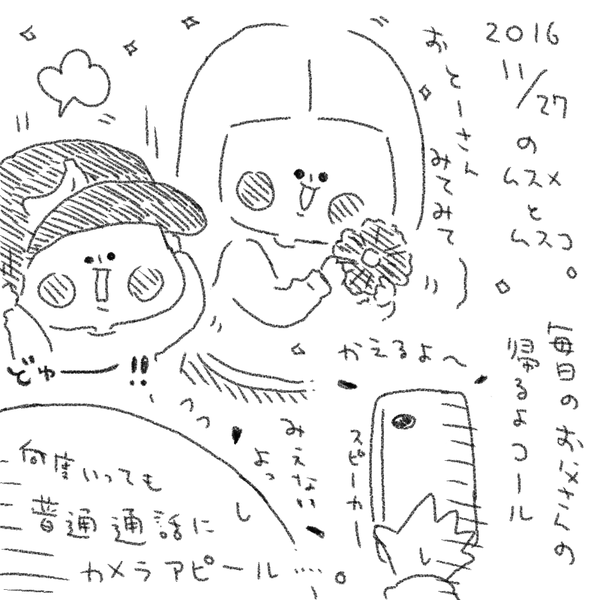 2016
11/27
の
ムスメ
と
ムスコ。
毎日のお父さんの
帰るよコール
おとーさん
みてみて
どゅー!!
かえるよ〜
スピーカー
みえない
よっ
何度いっても
普通通話に
カメラアピール……。